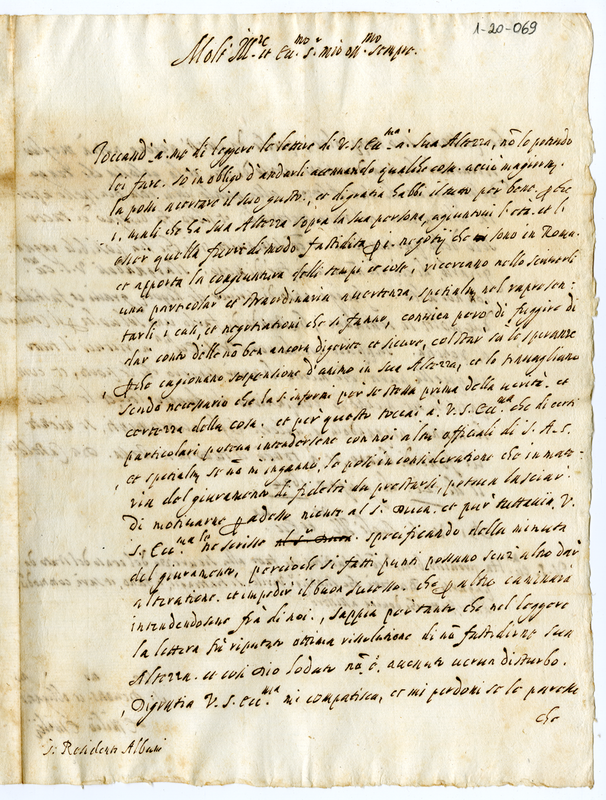 1-20-069
Molt' Ill.re et Ecc.mo S.r mio oss.mo sempre.
Toccand' à me di leggere le lettere di V.S. Ecc.ma à Sua Altezza, nō lo potendo
lei fare. Sò in obligo d'andarli accennando qualche cosa acciò magiorm.
la possi accertare il suo gusto, et di gratia habbi il tutto per bene. perche
i mali che hà Sua Altezza sopra la sua persona, agiuntovi l'età, et l'
esser quella di modo fastidita p i negotij che sono in Roma
et apporta la congiuntura delli tempi et cose, ricercano nello scriverli
una particolar et straordinaria avertenza, spetialm. nel rapresen:
tarli i casi, et negotiationi che si fanno, convien però di fuggire di
dar conto delle nō ben ancora digerite et sicure, col star su le speranze
perche cagionano sospensione d'animo in Sua Altezza, et lo travagliano
sendo necessario che la s'informi per se stessa prima della verità et
certezza della cosa. et per questo toccai à V.S. Ecc.ma che di certi
particolari poteva intendersene con noi altri officiali di S. A. S.
et spetialm. se nō m'inganno, lo posi in consideratione che in mate-
ria del giuramento di fideltà da prestarsi, poteva lasciar
di motivarne p adesso niente al S.r Duca. et pur tuttavia V.
S. Ecc.ma lo ne scrisse al S.r Duca. specificando della minuta
del giuramento, percioche si fatti punti possano senz'altro dar
alteratione. et impedir il buon successo. che p altro caminara
intendendosene frà di noi, sappia per tanto che nel leggere
la lettera fù riputata ottima rissolutione di nō fastidirne Sua
Altezza. et cosi Dio lodato nō è avenuto verun disturbo.
Di gratia V.S. Ecc.ma mi compatisca, et mi perdoni se le paresse
che
S.r Residente Albani